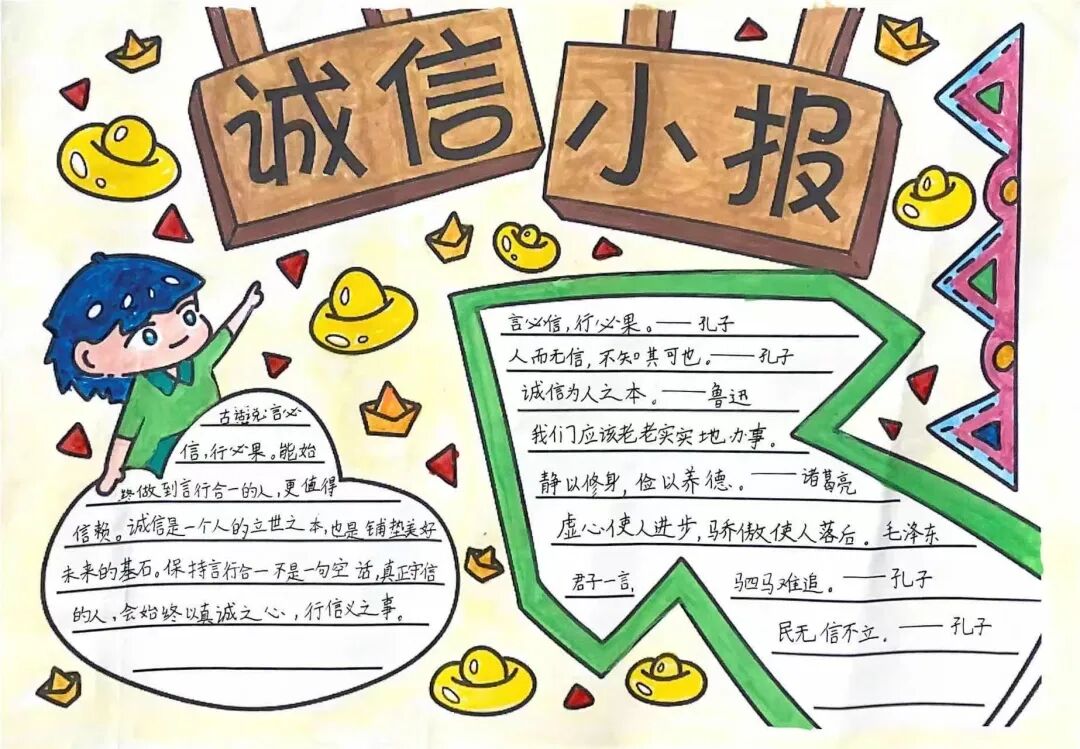 诚信小报
古话说言必
信，行必果。能始
终做到言行合一的人，更值得
信赖。诚信是一个人的立世之本，也是铺垫美好
未来的基石。保持言行合一不是一句空话，真正守信
的人，会始终以真诚之心，行信义之事。
言必信，行必果。——孔子
人而无信，不知其可也。——孔子
诚信为人之本。——鲁迅
我们应该老老实实地办事。
静以修身，俭以养德。——诸葛亮
虚心使人进步，骄傲使人落后。毛泽东
君子一言，驷马难追。——孔子
民无信不立。——孔子